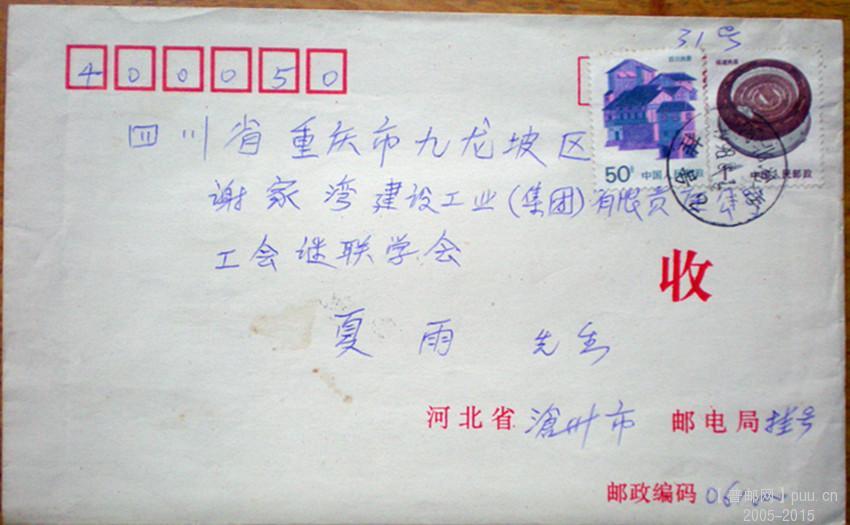 31号
400050
四川民居
50分
中国人民邮政
福建民居
1
中国人民邮政
四川省重庆市九龙坡区
谢家湾建设工业(集团)有限责任公
工会谜联学会
收
夏雨 先生
河北省 沧州市 邮电局 挂号
邮政编码 06
[普邮网] puu.cn
2005-2015